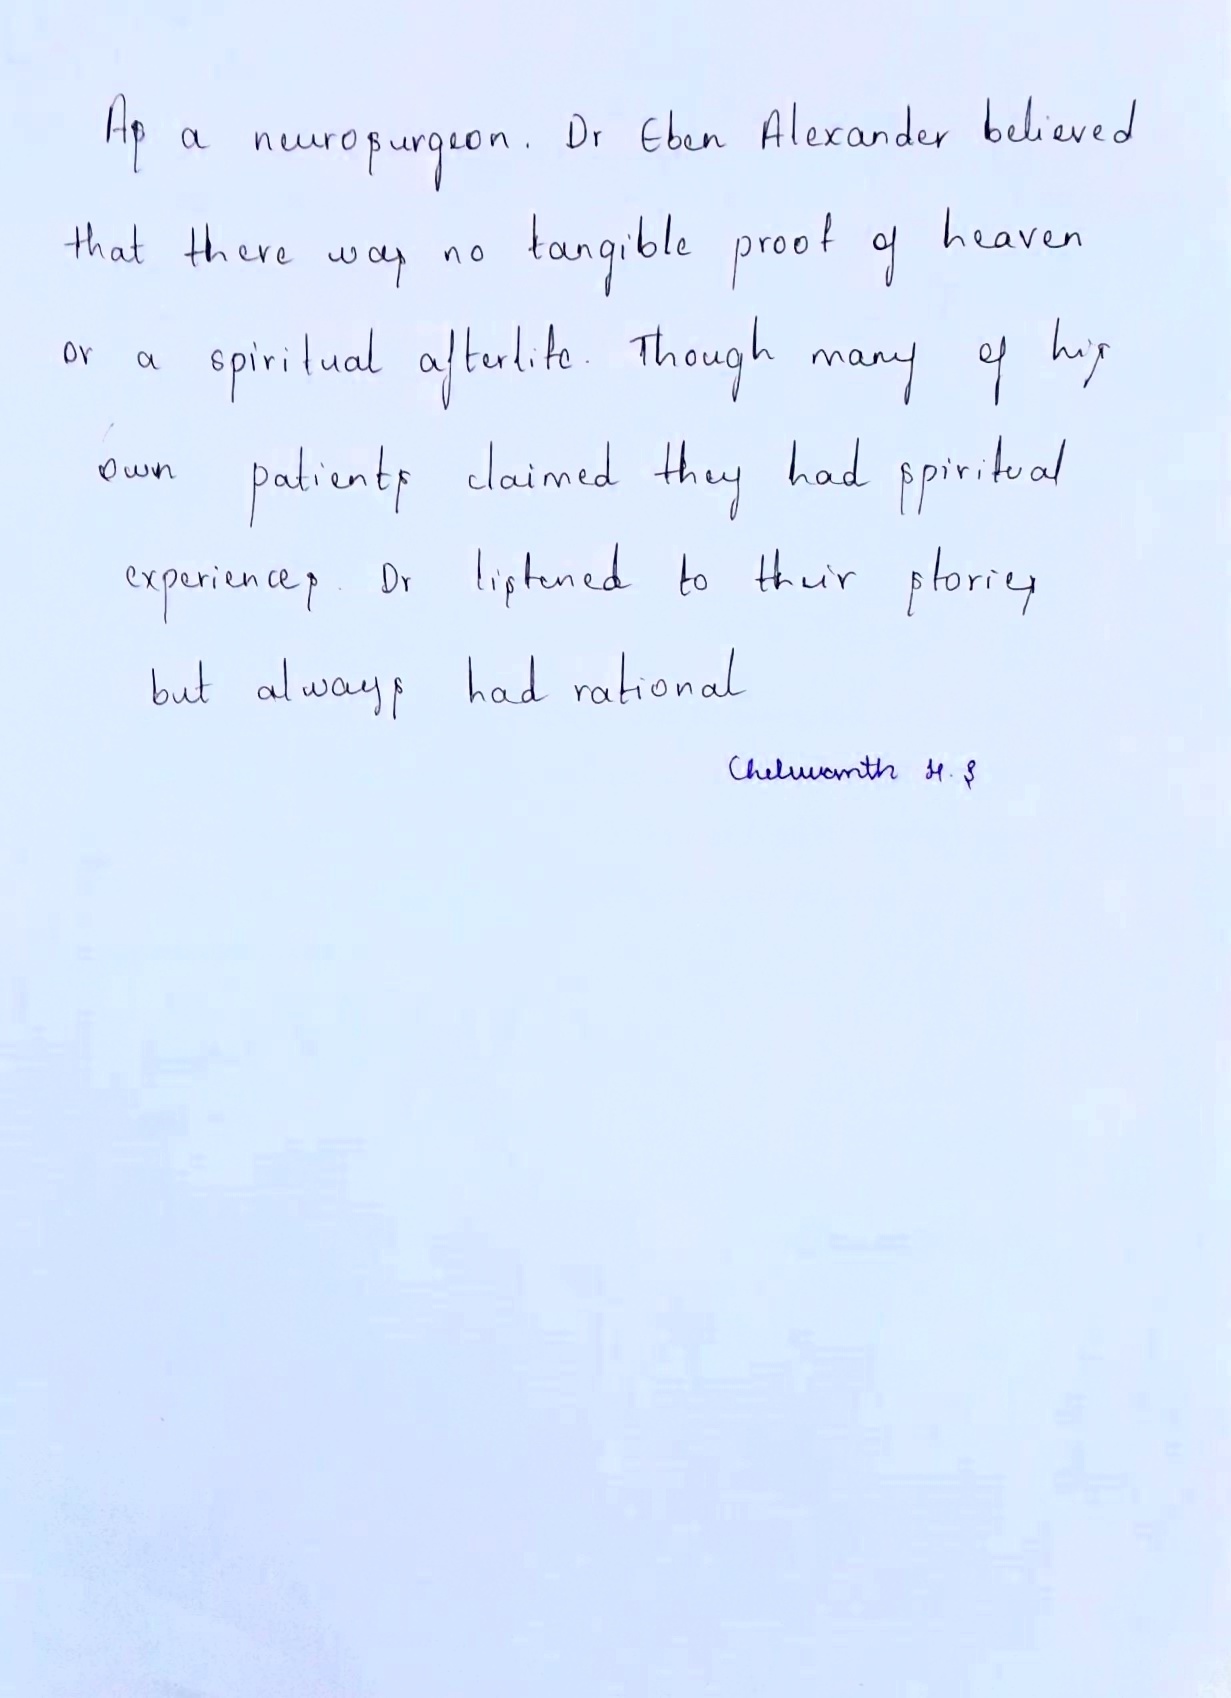 As a neurosurgeon. Dr Eben Alexander believed
that there was no tangible proof of heaven
or a spiritual afterlife. Though many of his
own patients claimed they had spiritual
experiences. Dr listened to their stories
but always had rational
Cheluvamth H. S